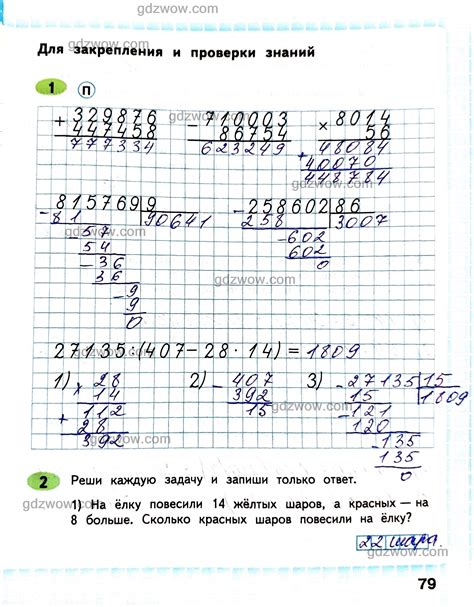 gdzwow.com
Для закрепления и проверки знаний
1 П
+ 329876 − 710003 × 8014
447458 86754 56
777334 623249 + 48084
40070
448784
− 815769 9 − 258602 86
81 90641 258 3007
− 57 − 602
54 602
− 36 0
36
− 9
9
0
27135:(407−28·14)=1809
1) × 28 2) − 407 3) − 27135 15
14 392 15 1809
+ 112 15 − 121
28 120
392 − 135
135
0
2 Реши каждую задачу и запиши только ответ.
1) На ёлку повесили 14 жёлтых шаров, а красных — на
8 больше. Сколько красных шаров повесили на ёлку?
22 шара.
gdzwow.com
79